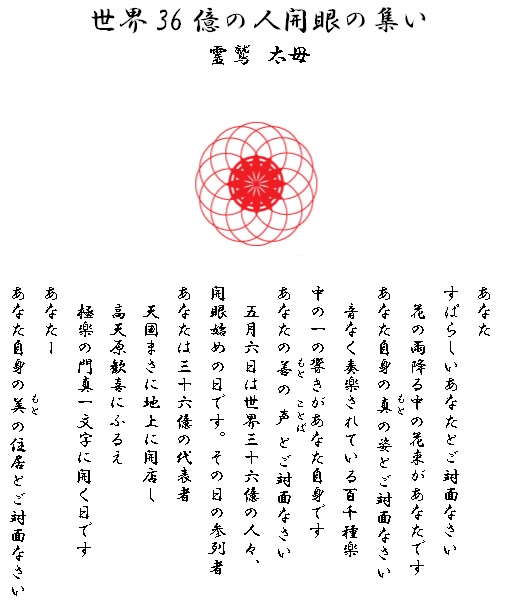 世界36億の人開眼の集い
霊鷲 太母
あなた
すばらしいあなたとご対面なさい
花の雨降る中の花束があなたです
あなた自身の真の姿とご対面なさい
もと
音なく奏楽されている百千種楽
中の一の響きがあなた自身です
あなたの善の声とご対面なさい
もと ことば
五月六日は世界三十六億の人々、
開眼始めの日です。その日の参列者
あなたは三十六億の代表者
天国まさに地上に開店し
高天原歓喜にふるえ
極楽の門真一文字に開く日です
あなたー
あなた自身の美の住居とご対面なさい
もと